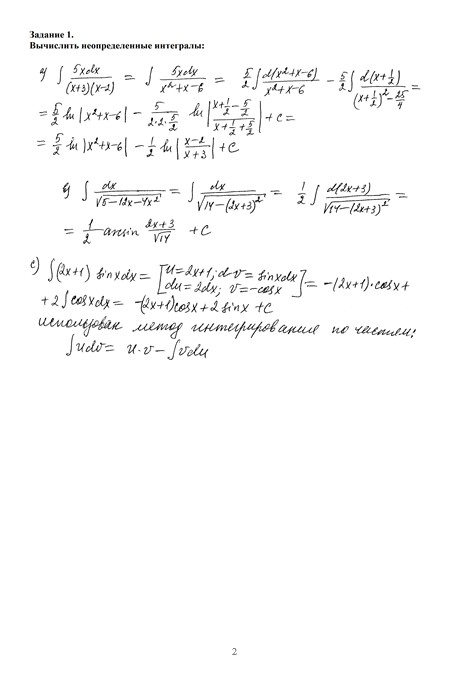 Задание 1.
Вычислить неопределенные интегралы:
a) ∫ 5xdx/((x+3)(x-2)) = ∫ 5xdx/(x²+x-6) = 5/2 ∫ d(x²+x-6)/(x²+x-6) - 5/2 ∫ d(x+1/2)/((x+1/2)²-25/4) =
= 5/2 ln|x²+x-6| - 5/(2·2·5/2) ln|(x+1/2-5/2)/(x+1/2+5/2)| + C =
= 5/2 ln|x²+x-6| - 1/2 ln|(x-2)/(x+3)| + C
b) ∫ dx/√(5-12x-4x²) = ∫ dx/√(14-(2x+3)²) = 1/2 ∫ d(2x+3)/√(14-(2x+3)²) =
= 1/2 arcsin (2x+3)/√14 + C
c) ∫(2x+1) sinxdx = [u=2x+1; dv=sinxdx
du=2dx; v=-cosx] = -(2x+1)·cosx+
+2∫cosxdx = -(2x+1)cosx+2sinx+C
использован метод интегрирования по частям:
∫udv= u·v-∫vdu
2